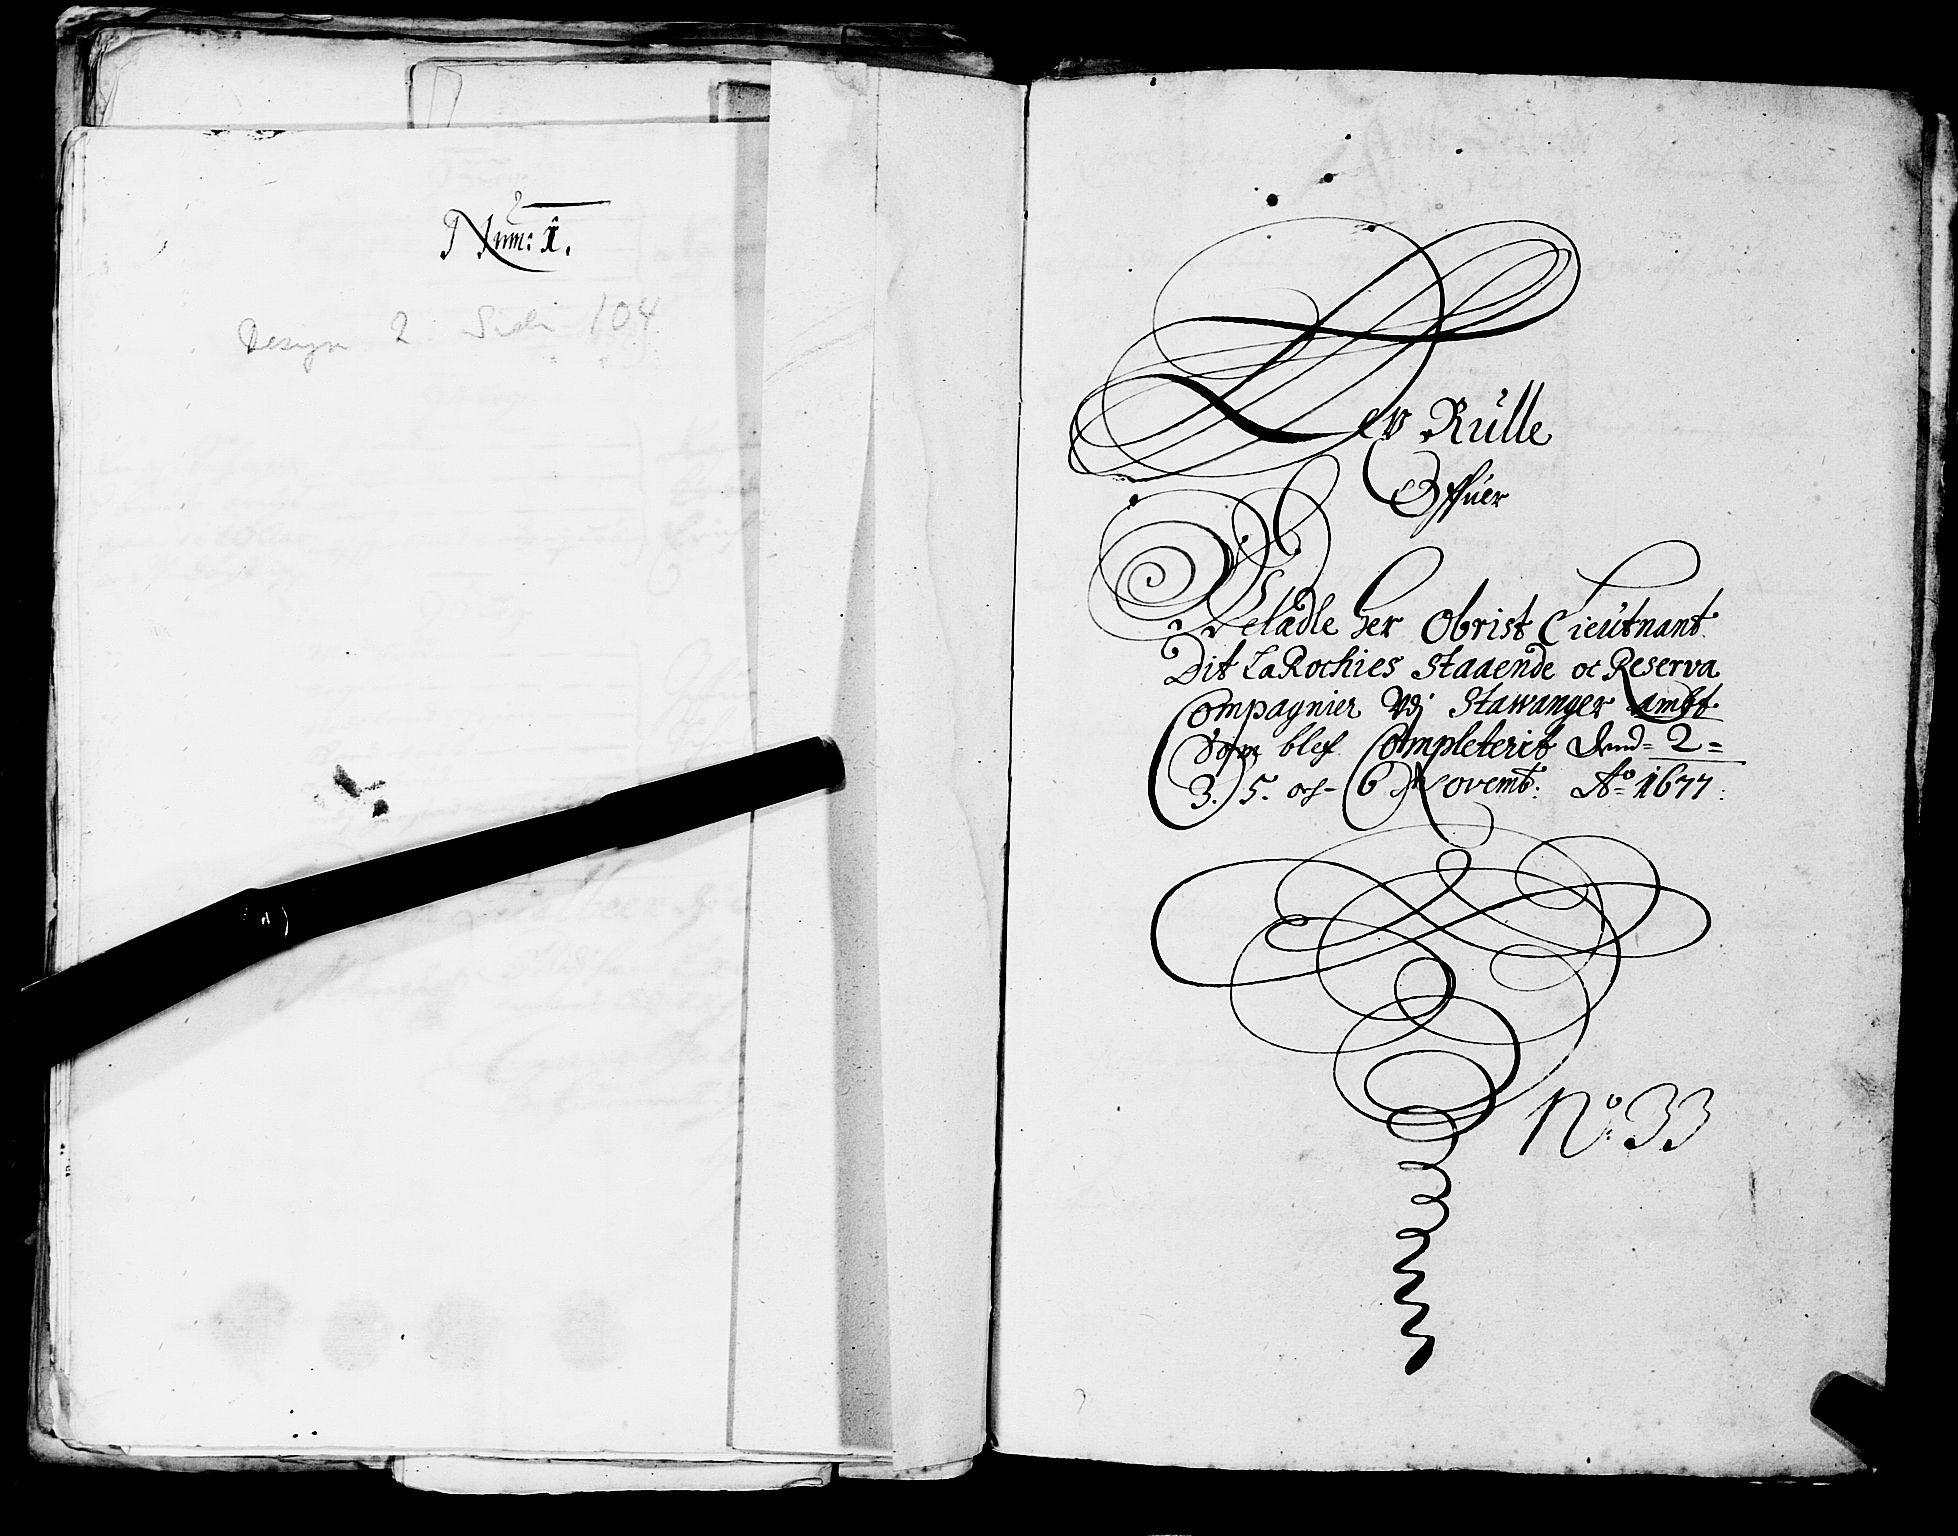 Num: 1.
Design 2 Side 104
Lev Rülle
Offuer
Velädle her Obrist Lieütnant
Dit LaRochies Staaende oc Reserva
Compagnier Vdj Stawanger ambt
Som blef Completerit dend = 2 =
3. 5. og 6 Novemb: Ao 1677:
No: 33